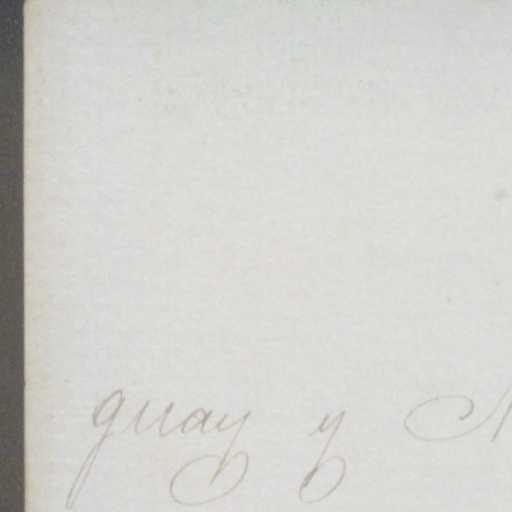 guay y